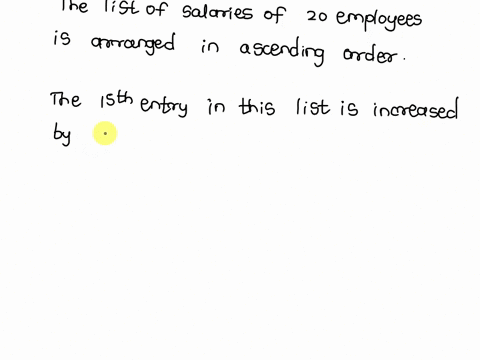 The list of salaries of 20 employees
is arranged in ascending order.
The 15th entry in this list is increased
by